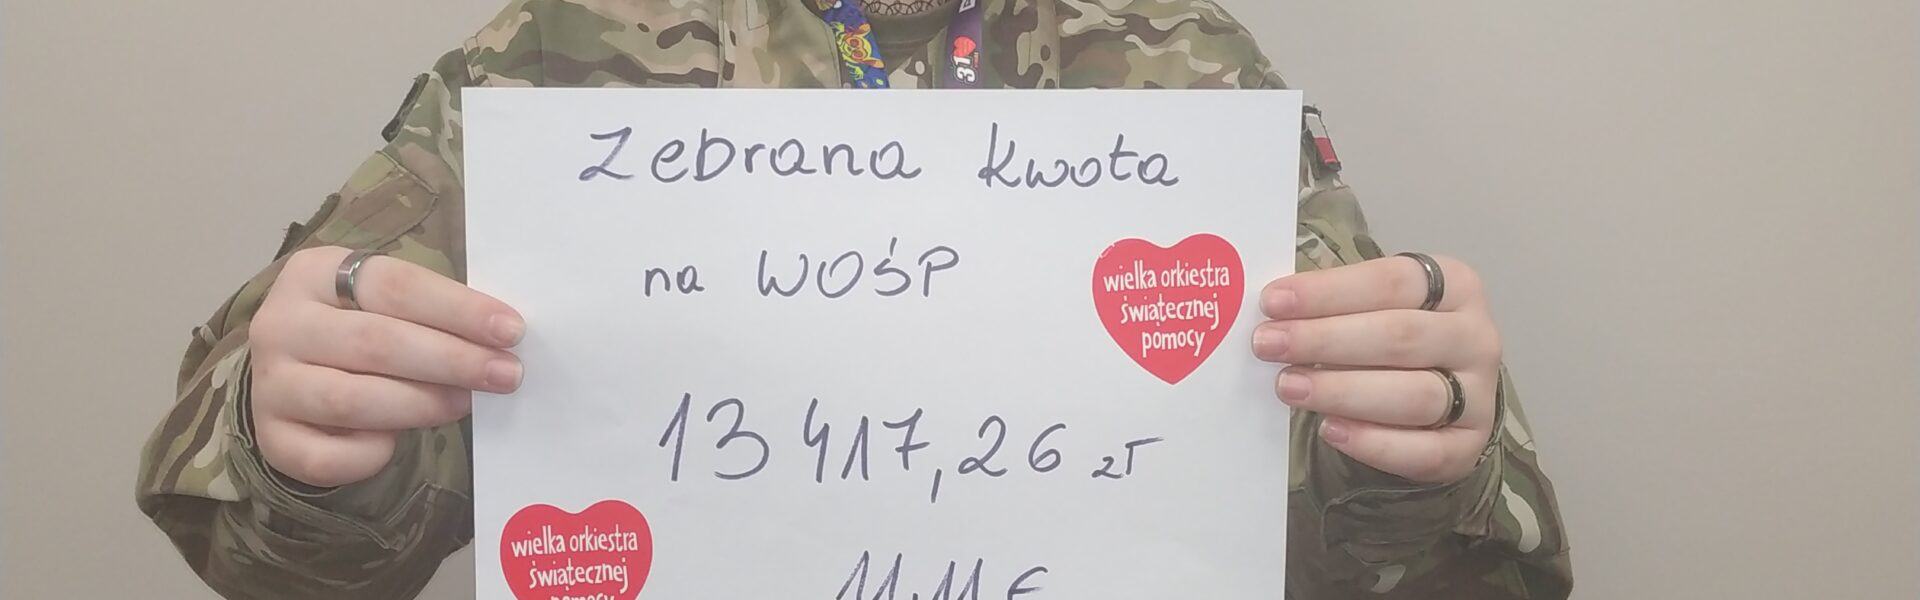 31
Zebrana kwota
na WOŚP
wielka orkiestra
świątecznej
pomocy
13 417,26 zł
wielka orkiestra
świątecznej
pomocy
11,11 €